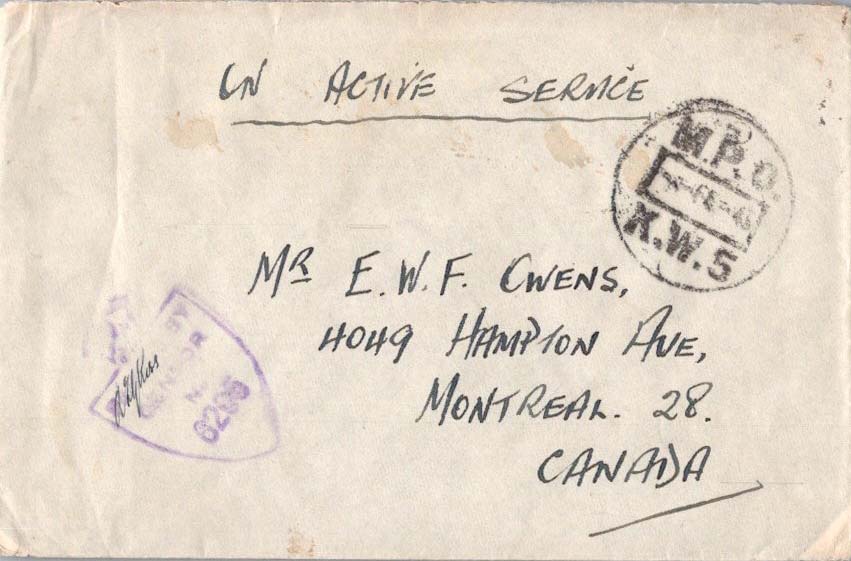 ON ACTIVE SERVICE
M.P.O.
X.W.5
MR E.W.F. OWENS,
4049 HAMPTON AVE,
MONTREAL. 28.
CANADA
BY
CENSOR
6295